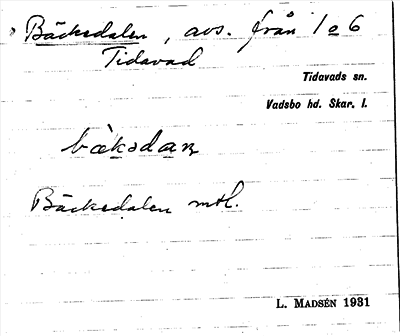 Bäcksdalen, avs. från 1 o 6
Tidavad
Tidavads sn.
Vadsbo hd. Skar. l.
Bäcksdalen mtl.
L. MADSÉN 1931